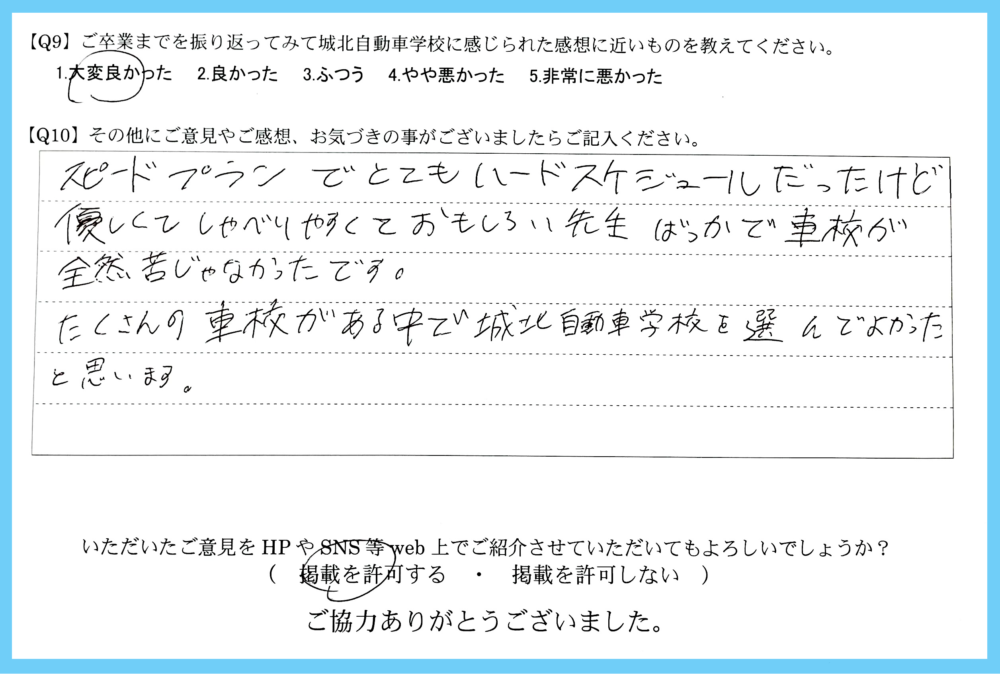 【Q9】ご卒業までを振り返ってみて城北自動車学校に感じられた感想に近いものを教えてください。
1.大変良かった 2.良かった 3.ふつう 4.やや悪かった 5.非常に悪かった
【Q10】その他にご意見やご感想、お気づきの事がございましたらご記入ください。
スピードプランでとてもハードスケジュールだったけど
優しくて しゃべりやすくて おもしろい先生 ばっかで車校が
全然苦じゃなかったです。
たくさんの車校がある中で城北自動車学校を選んでよかった
と思います。
いただいたご意見をHPやSNS等web上でご紹介させていただいてもよろしいでしょうか？
( 掲載を許可する ・ 掲載を許可しない )
ご協力ありがとうございました。